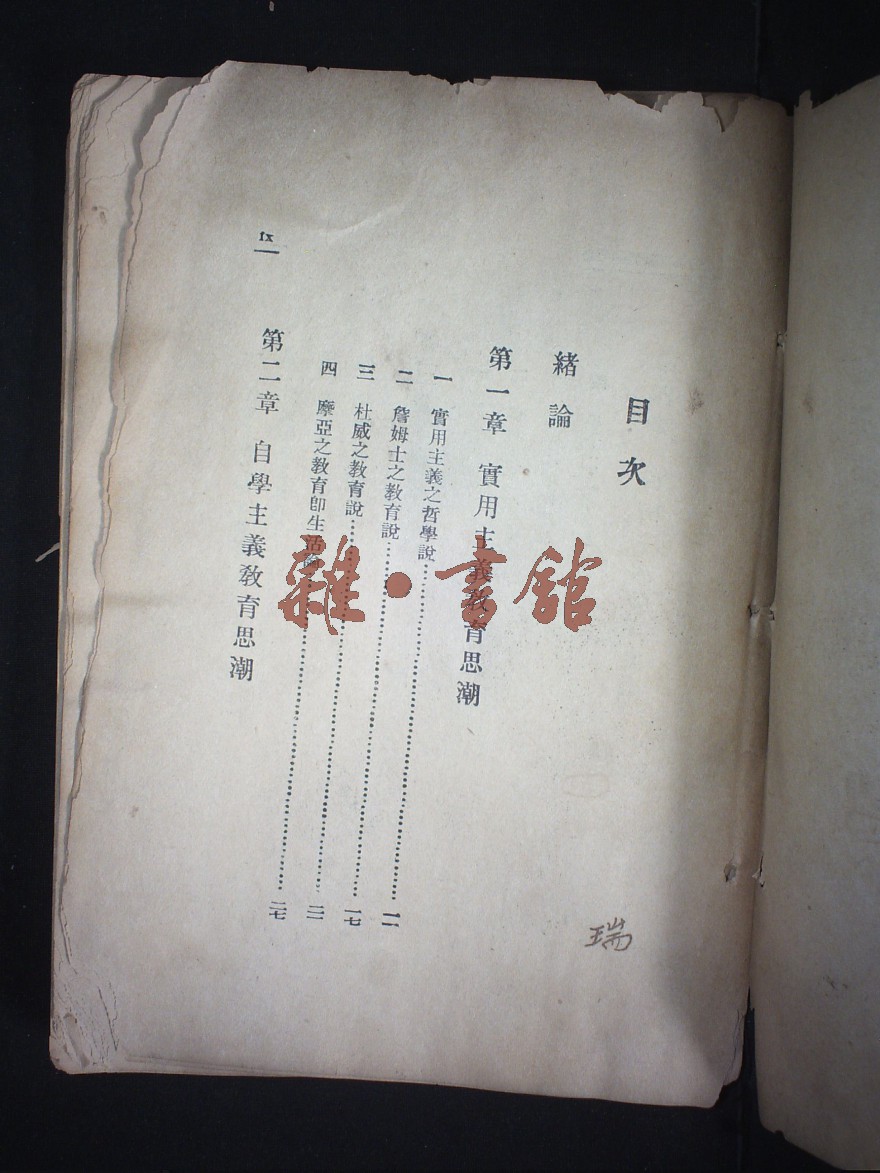 目次
緒論
第一章 實用主義教育思潮
一 實用主義之哲學說……一一
二 詹姆士之教育說……一七
三 杜威之教育說……
四 摩亞之教育即生活論……二七
第二章 自學主義教育思潮
ix
瑞
雜·書舘